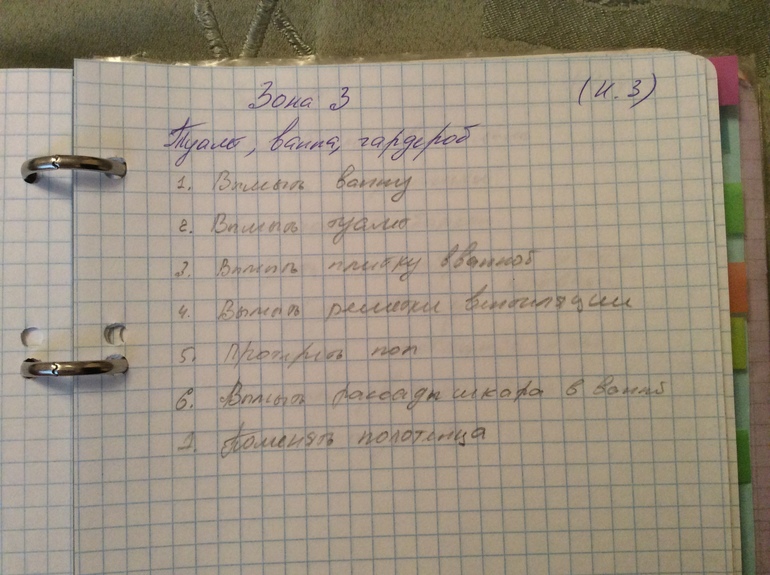 Зона 3 (н. 3)
Туалет, ванна, гардероб
1. Вымыть ванну
2. Вымыть туалет
3. Вымыть плитку в ванной
4. Вымыть решетки вентиляции
5. Протереть пол
6. Вымыть фасады шкафа в ванной
7. Поменять полотенца